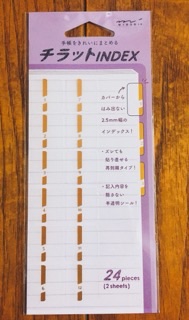 MIDORI
手帳をきれいにまとめる
チラットINDEX
カバーから
はみ出ない
2.5mm幅の
インデックス!
・ズレても
貼り直せる
再剥離タイプ!
・記入内容を
隠さない
半透明シール!
24 pieces
(2 sheets)